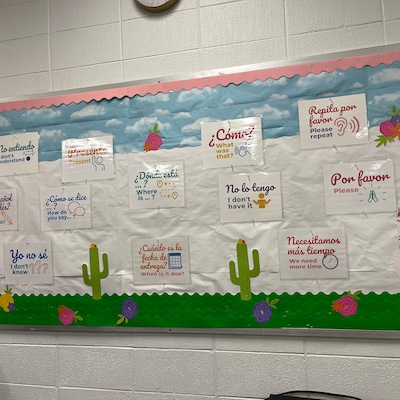 No entiendo
I don't
understand
¡Presente!
Present
¿Dónde está
...?
Where
is ...?
¿Cómo?
What
was that?
Repita por
favor
Please
repeat
¿Cómo se dice
...?
How do
you say...
No lo tengo
I don't
have it
Por favor
Please
Yo no sé
I don't
know ???
¿Cuándo es la
fecha de
entrega?
When is it due?
Necesitamos
más tiempo
We need
more time